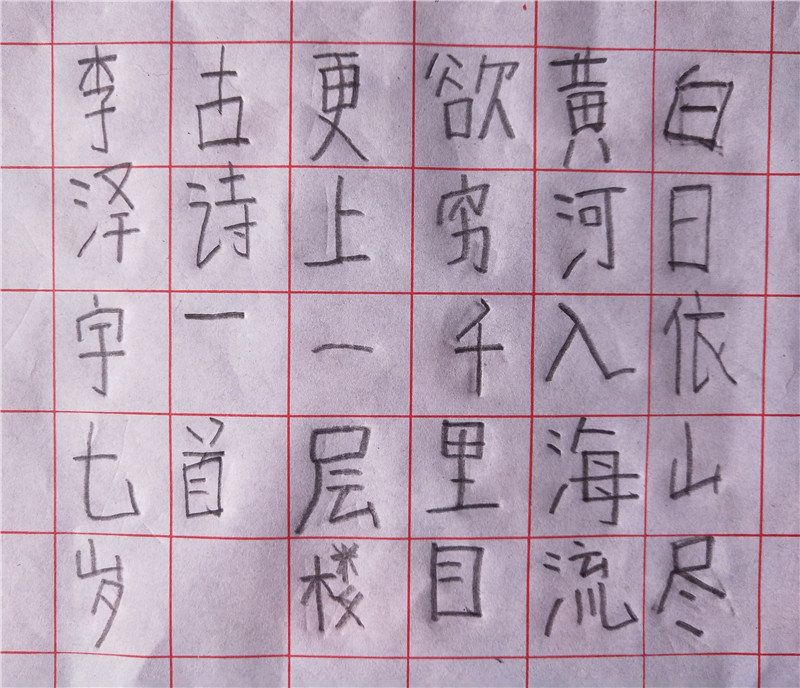 白日依山尽
黄河入海流
欲穷千里目
更上一层楼
古诗一首
李泽宇七岁